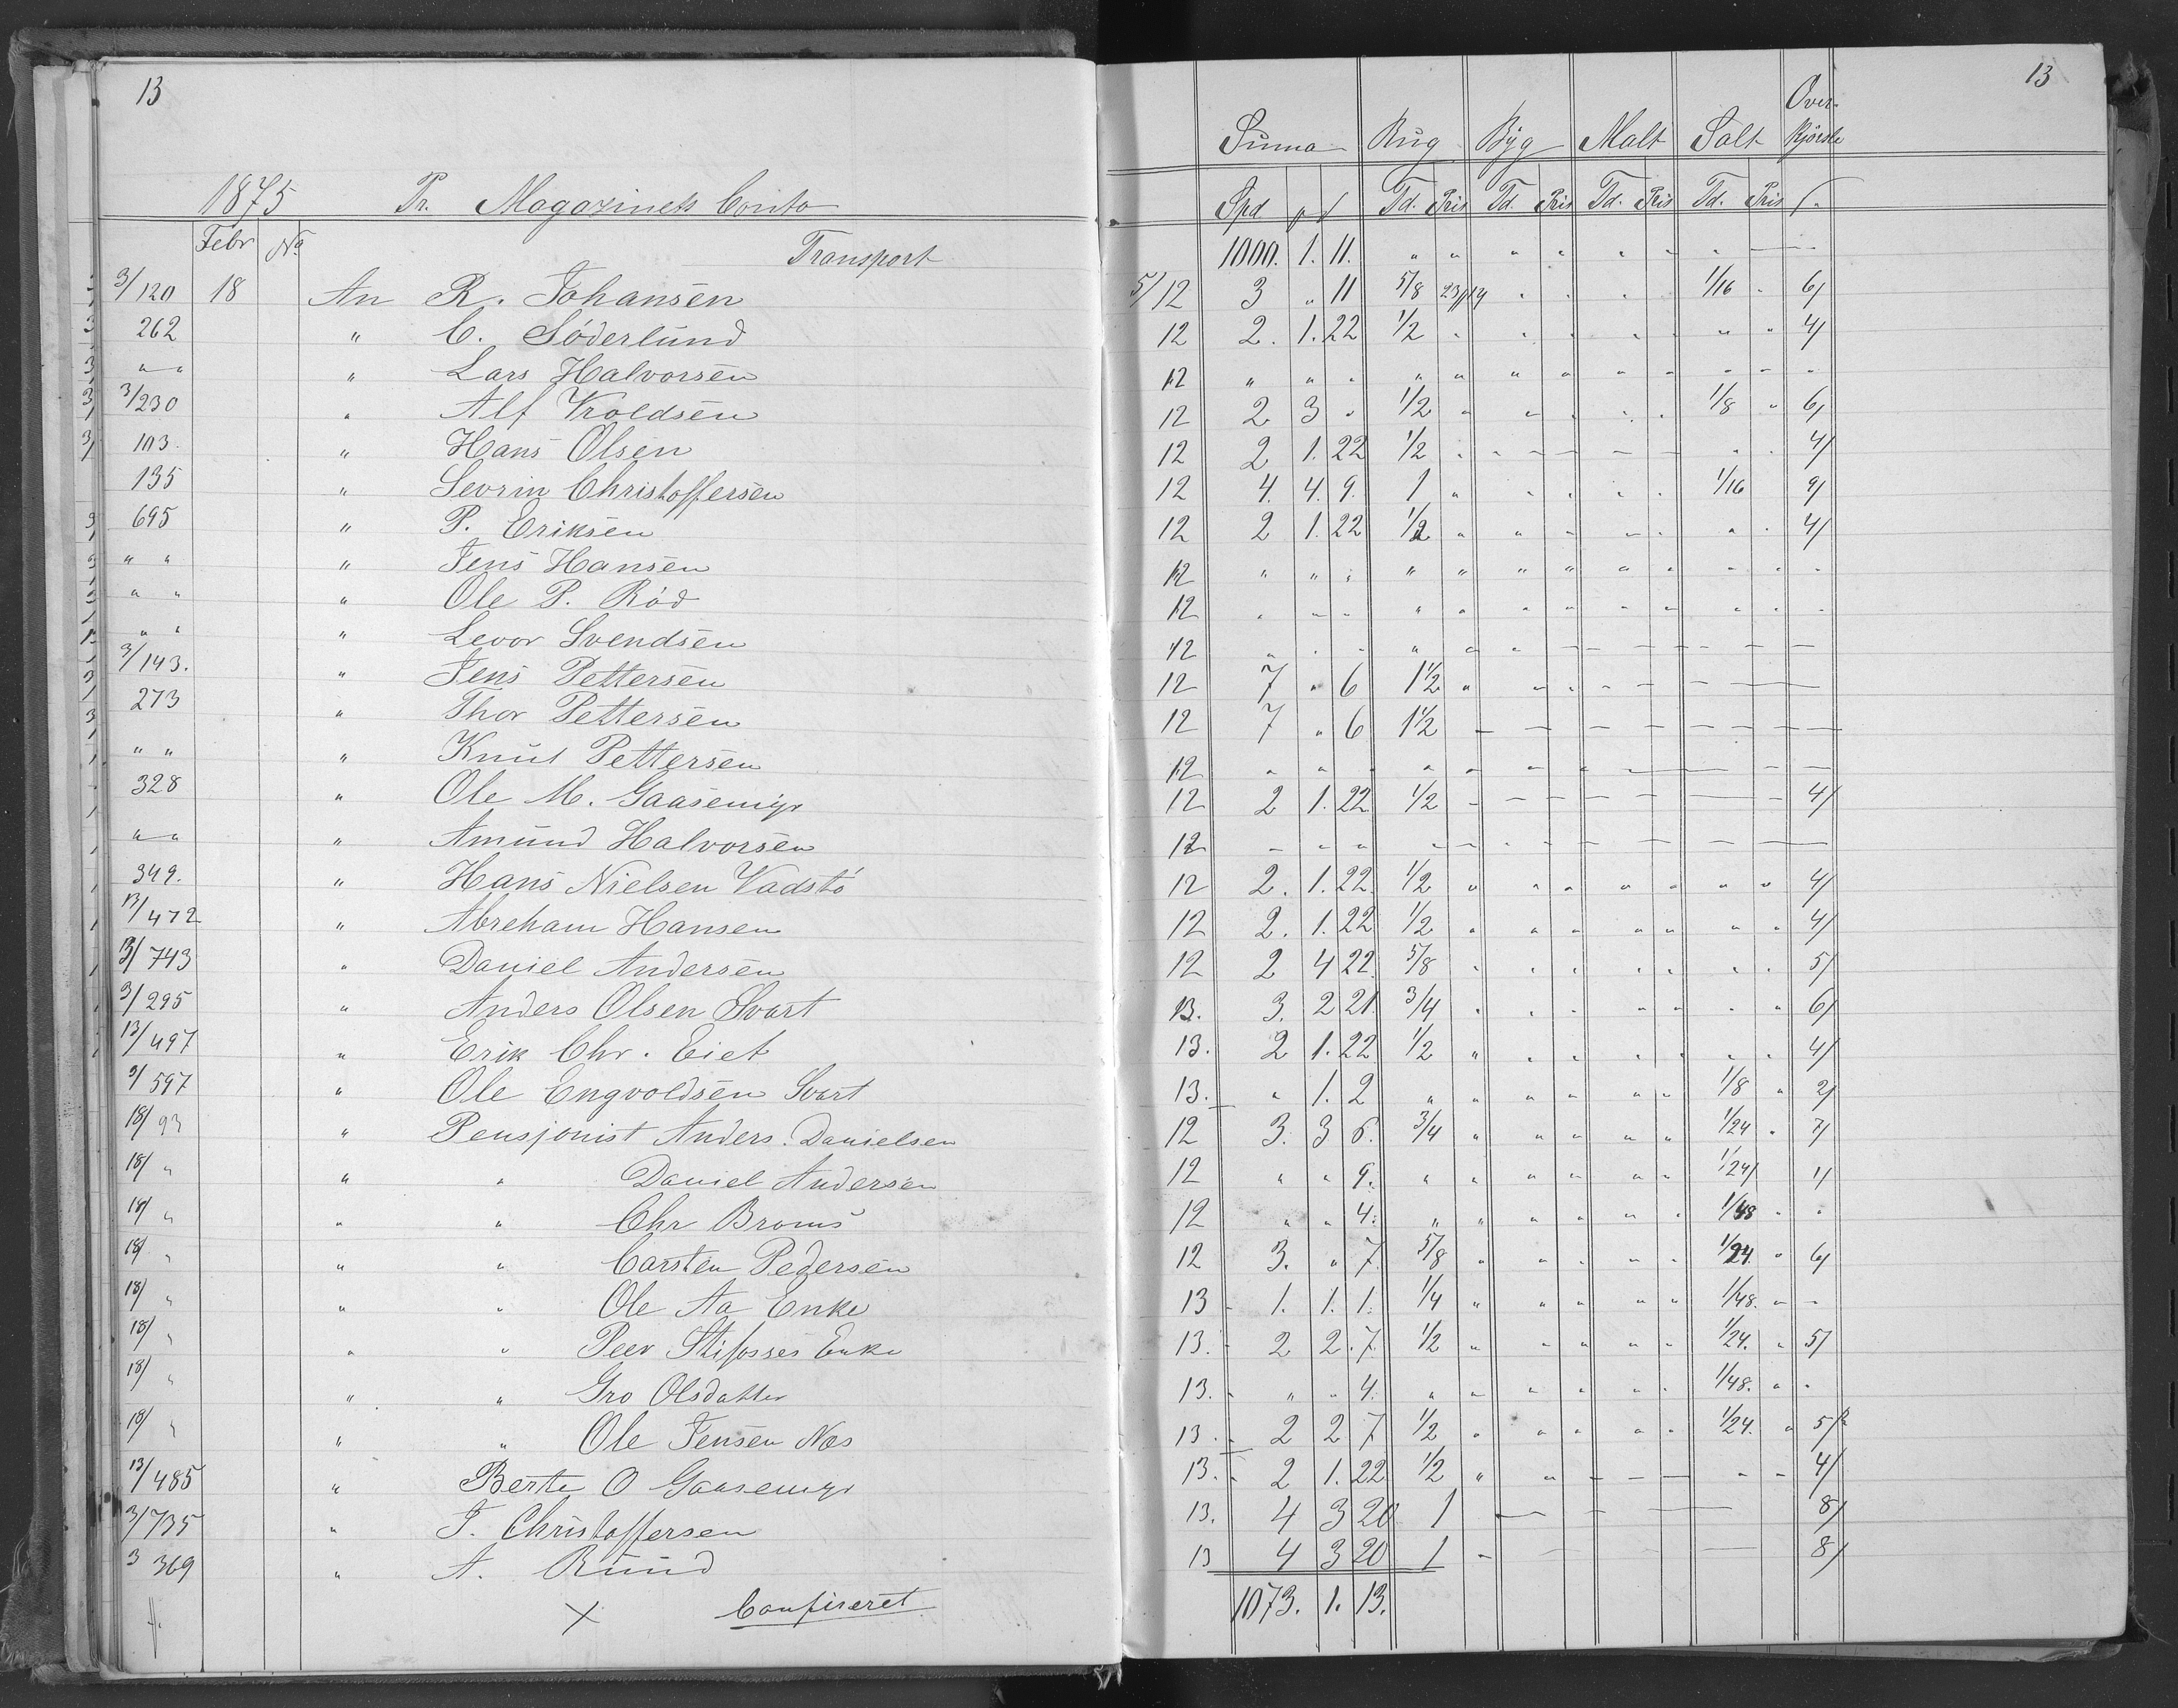 13
1875 Pr. Magazinets Conto
Febr No Transport
3/120 18 An R. Johansen
262 " C. Söderlund
" " " Lars Halvorsen
3/230 " Alf Kroldsen
103. " Hans Olsen
135 " Sevrin Christoffersen
695 " P. Eriksen
" " " Jens Hansen
" " " Ole P. Röd
" " " Levor Svendsen
3/143. " Jens Pettersen
273 " Thor Pettersen
" " " Knut Pettersen
328 " Ole M. Gaasemyr
" " " Amund Halvorsen
349. " Hans Nielsen Vadstö
13/472 " Abreham Hansen
3/743 " Daniel Andersen
3/295 " Anders Olsen Svart
13/497 " Erik Chr. Eiet
3/597 " Ole Engvoldsen Svart
18/93 " Pensjonist Anders. Danielsen
18/ " " " Daniel Andersen
18/ " " " Chr Broms
18/ " " " Carsten Pedersen
18/ " " " Ole Aa Enke
18/ " " " Peer Enke
18/ " " " Gro Olsdatter
18/ " " " Ole Jensen Næs
13/485 " Berte O Gaasemyr
3/735 " J. Christoffersen
3 369 " A. Rund
Confireret
13
Suma Rug Byg Malt Salt Over-kjörsle
Spd Td. Pris Td. Pris Td. Pris Td. Pris
1000. 1. 11. " " " " " " "
5/12 3 " 11 5/8 23/14 " " " " 1/16 " 6/
12 2. 1. 22 1/2 " " " " " " " 4/
12 " " " " " " " " " " " "
12 2 3 " 1/2 " " " " " 1/8 " 6/
12 2 1. 22 1/2 " " " " " " " 4/
12 4. 4. 9. 1 " " " " " 1/16 9/
12 2 1. 22 1/2 " " " " " " " 4/
12 " " " " " " " " " " " "
12 " " " " " " " " " " " "
12 " " " " " " " " " " " "
12 7 " 6 1 1/2 " " " " "
12 7 " 6 1 1/2
12 " " " " " " "
12 2 1. 22 1/2 4/
12 " " " "
12 2. 1. 22. 1/2 " " " " " " " 4/
12 2. 1. 22 1/2 " " " " " " " 4/
12 2 4 22. 5/8 " " " " " " " 5/
13. 3. 2 21. 3/4 " " " " " " " 6/
13. 2 1. 22 1/2 " " " " " " " 4/
13. " 1. 2 " " " " " " 1/8 " 2/
12 3. 3 6. 3/4 " " " " " 1/24 " 7/
12 " " 9. " " " " " " 1/24 1/
12 " " 4. " " " " " " 1/48 " "
12 3. " 7. 5/8 " " " " " 1/24. " 6/
13 1. 1. 1. 1/4 " " " " " 1/48. " "
13. 2 2. 7. 1/2 " " " " " 1/24. " 5/
13. " " 4. " " " " " " 1/48. " "
13. 2 2 7 1/2 " " " " " 1/24. " 5/
13. 2 1. 22 1/2 " " 4/
13. 4 3 20 1 8/
13 4 3 20 1 8/
1073. 1. 13.